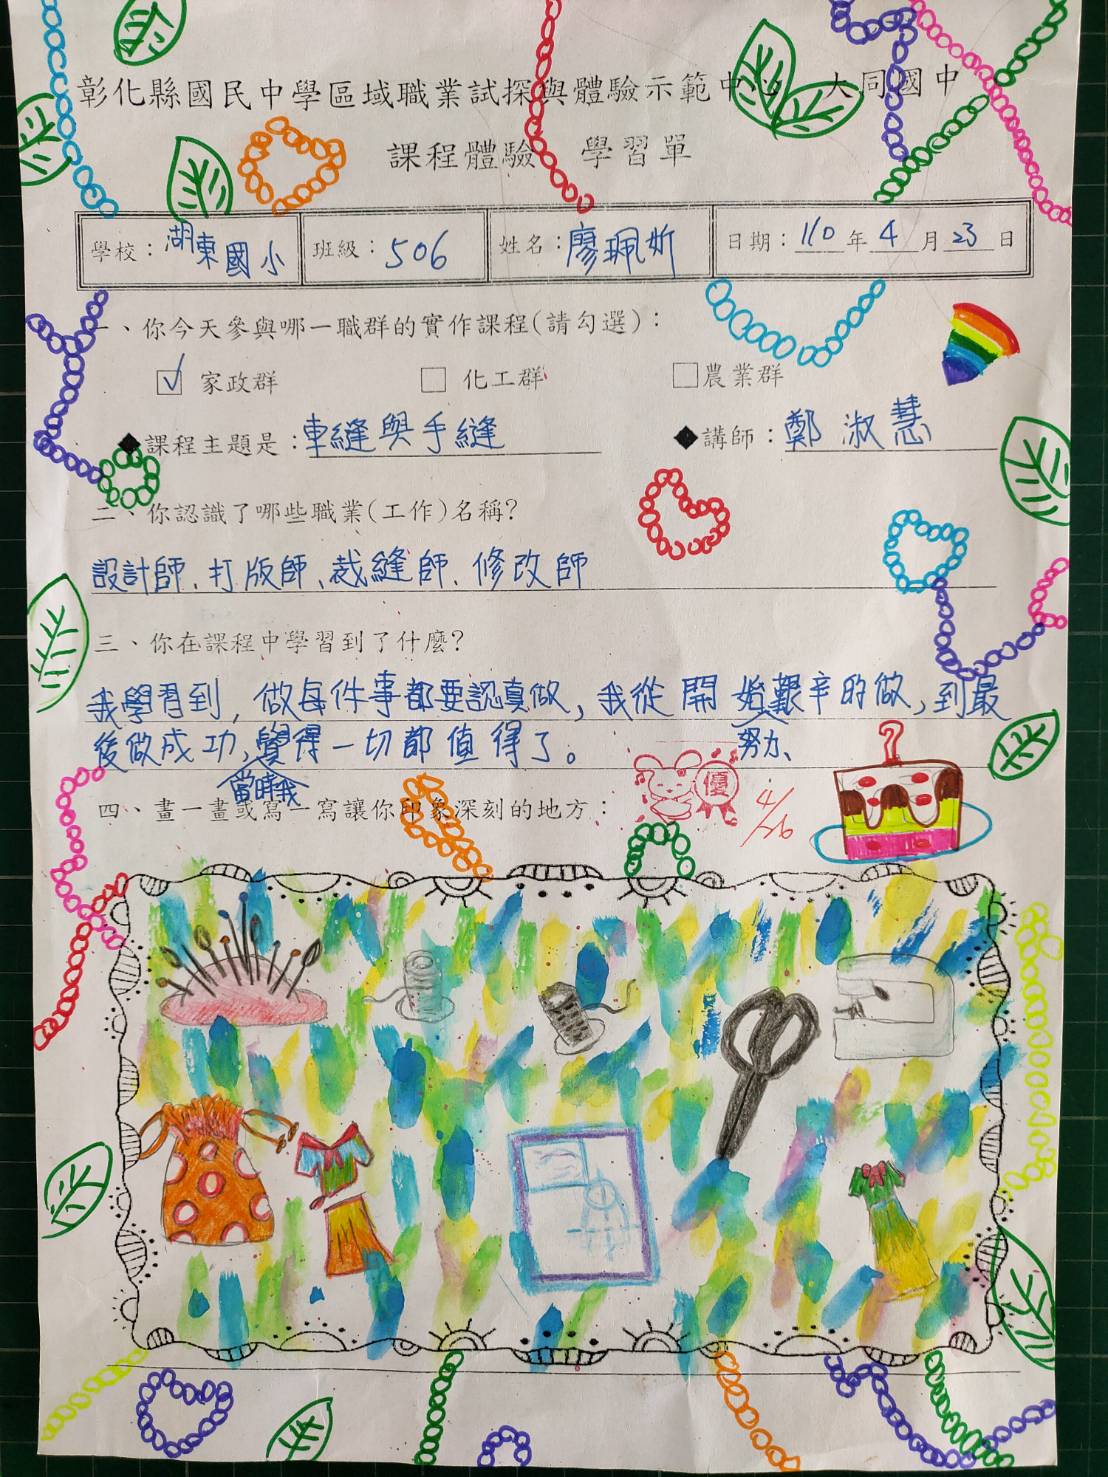 彰化縣國民中學區域職業試探與體驗示範中心 大同國中
課程體驗 學習單
學校：湖東國小 班級：506 姓名：廖珮妡 日期：110年4月23日
一、你今天參與哪一職群的實作課程(請勾選)：
☑ 家政群 □ 化工群 □農業群
◆課程主題是：車縫與手縫 ◆講師：鄭淑慧
二、你認識了哪些職業(工作)名稱?
設計師、打版師、裁縫師、修改師
三、你在課程中學習到了什麼?
我學習到，做每件事都要認真做，我從開始努力、艱辛的做，到最
後做成功，當時我覺得一切都值得了。
優
4/26
四、畫一畫或寫一寫讓你印象深刻的地方：